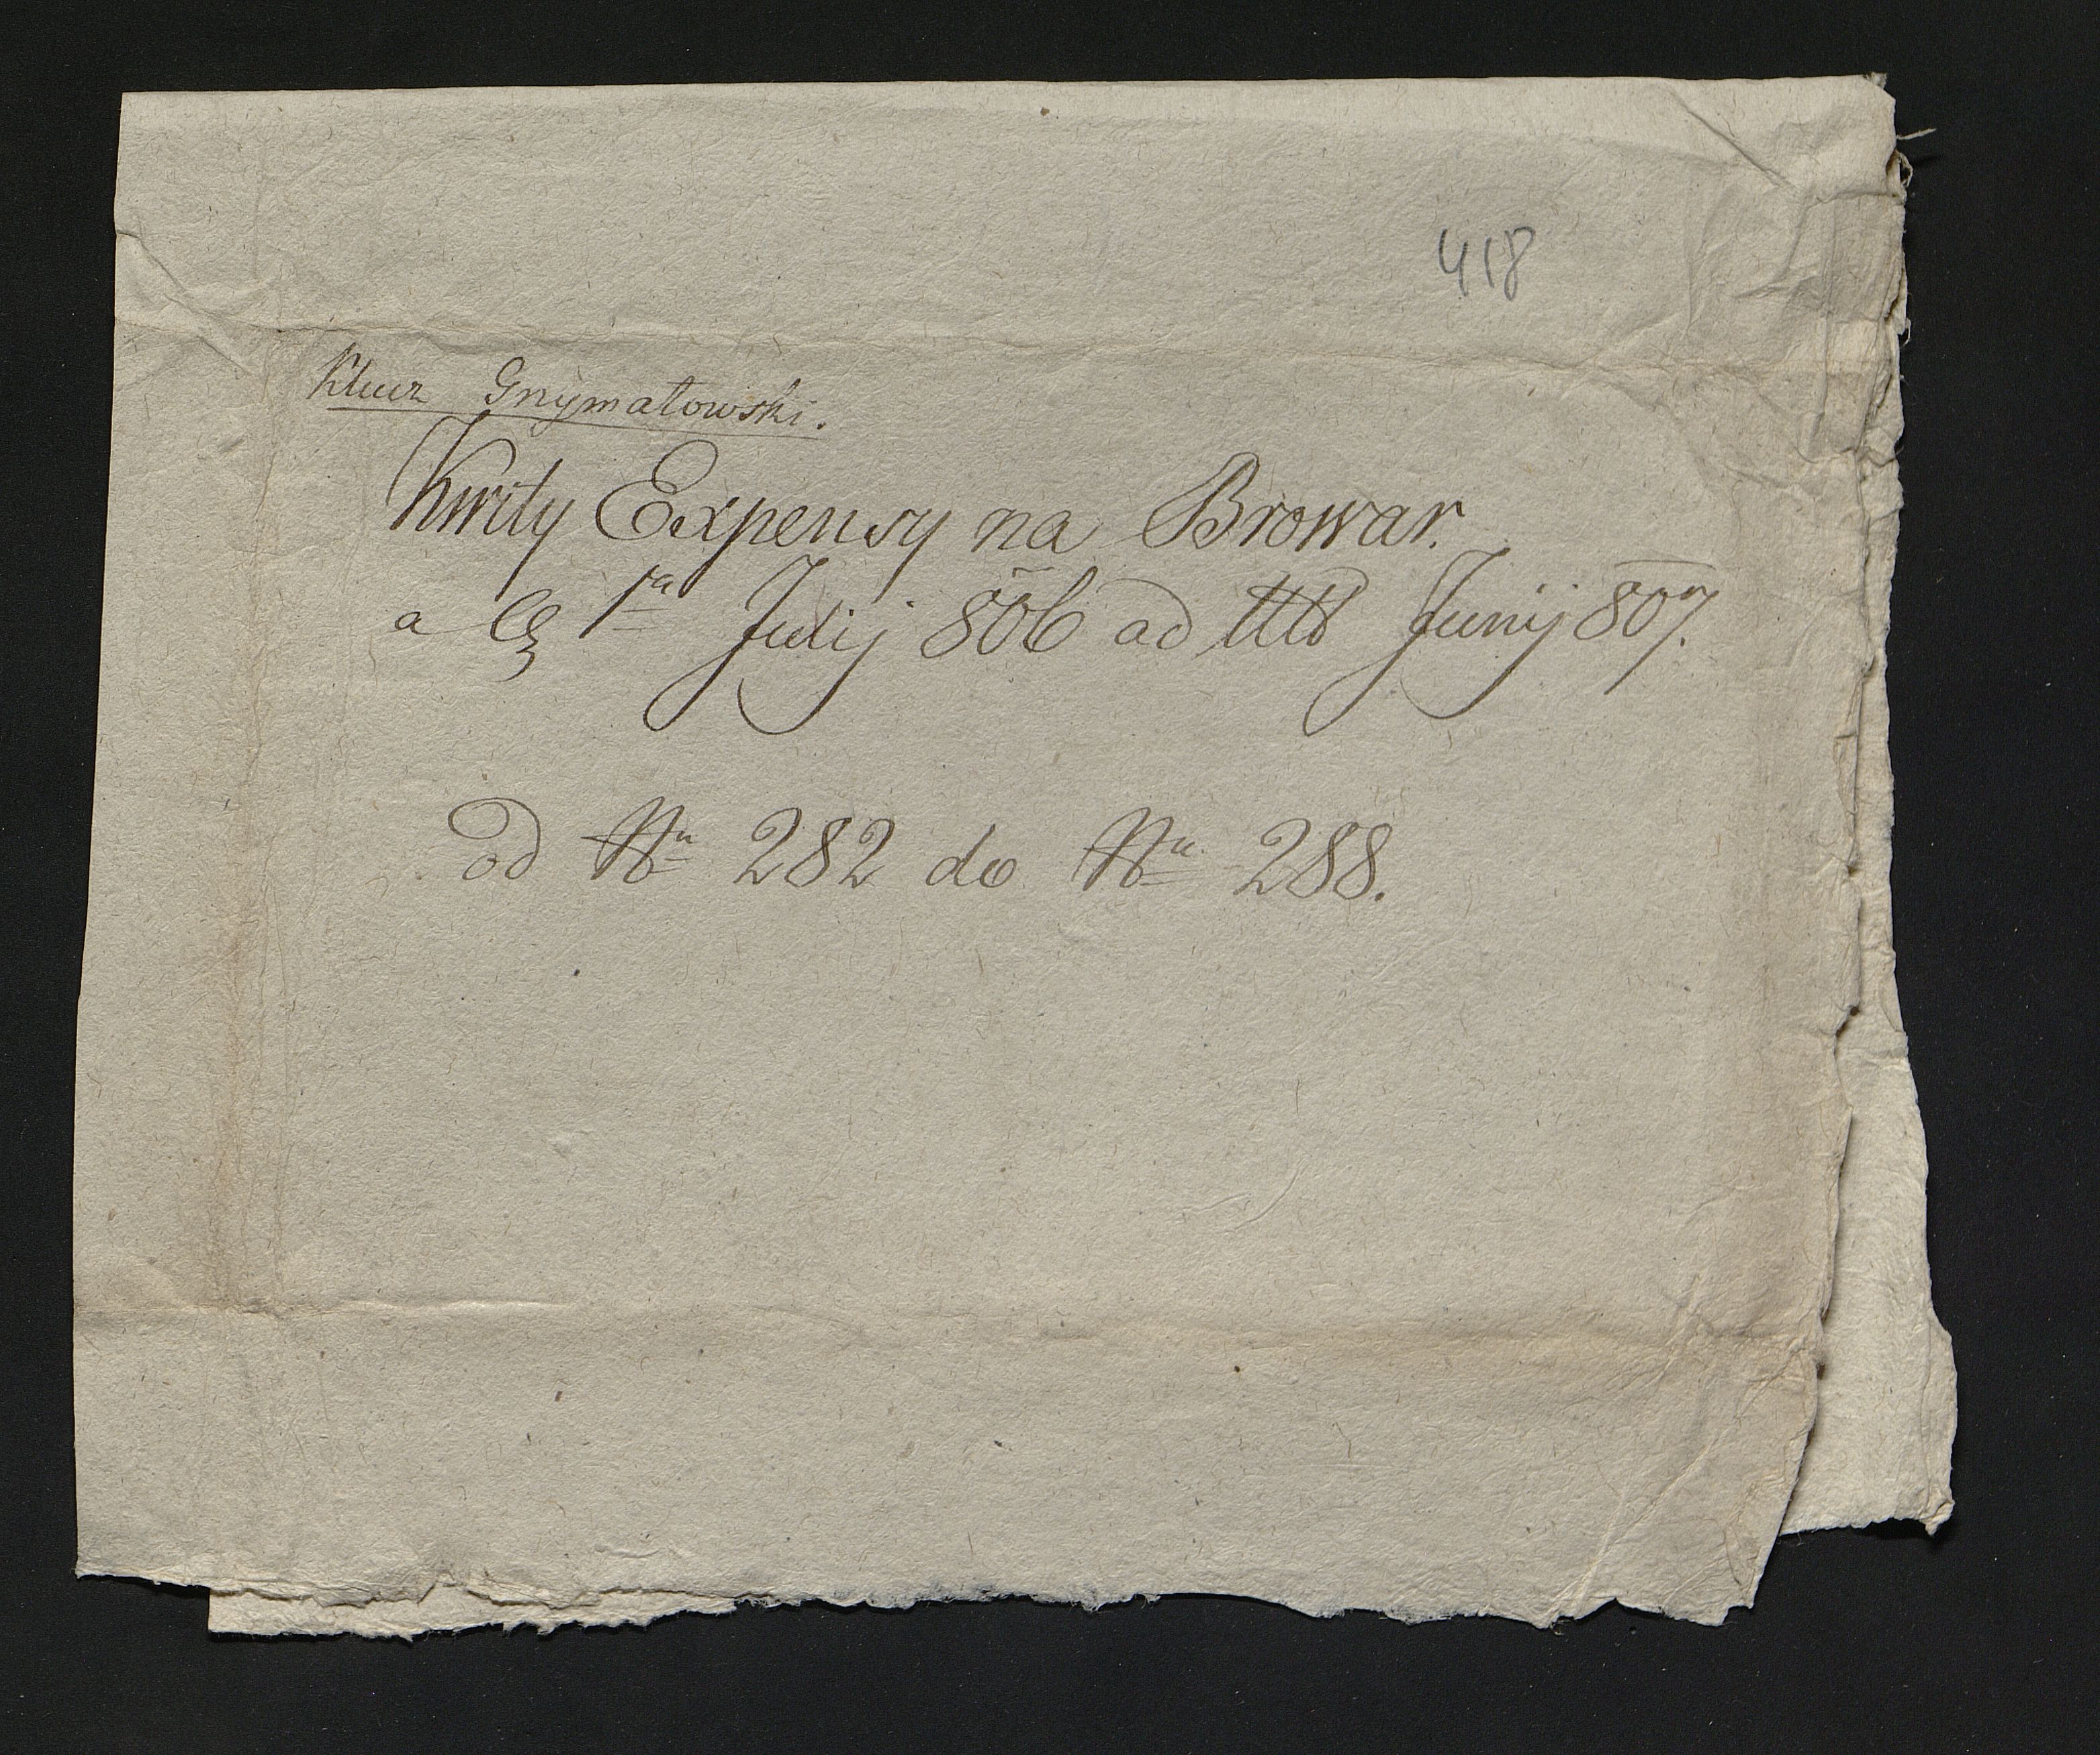 418
Klucz Grzymałowski.
Kwity Expensy na Browar.
a 1ma Julij 806 ad Junij 807.
od Nru 282 do Nru 288.